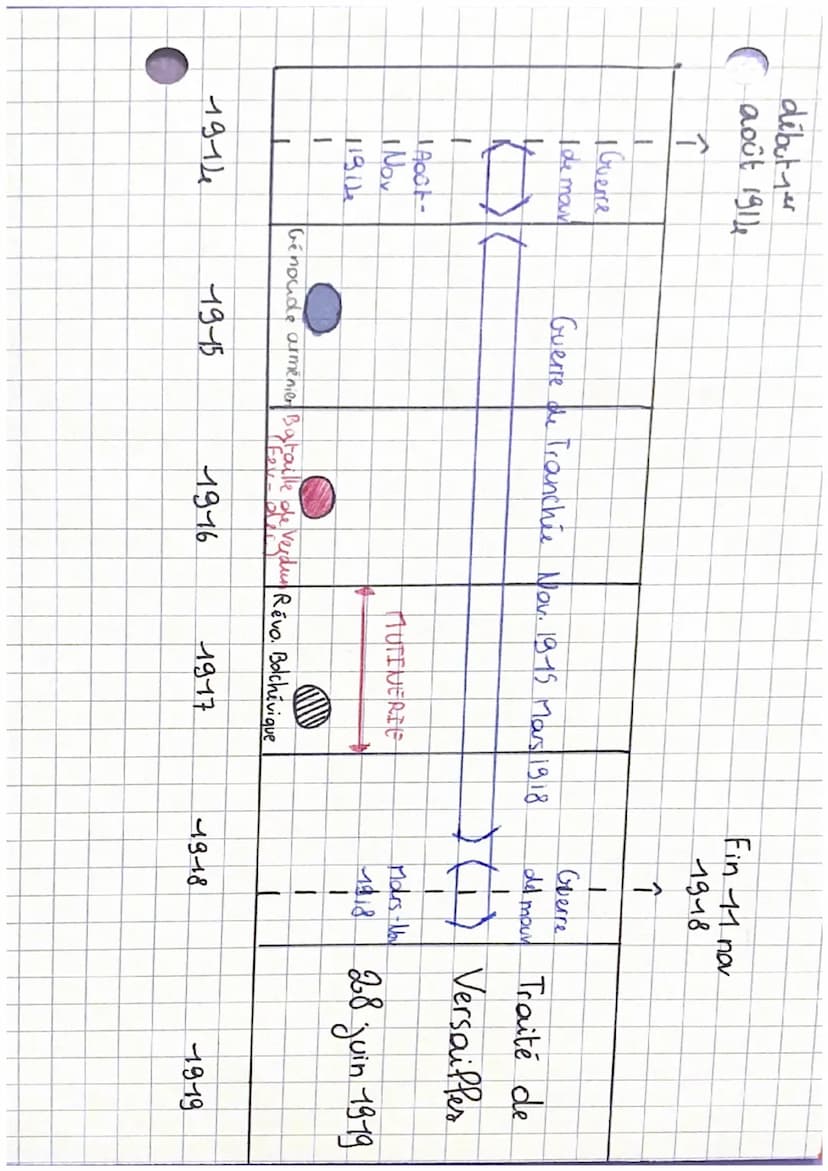 début 1er
août 1914
Fin 11 nov
1918
Guerre
de mouv
Août-
Nov
1914
Guerre de Tranchée Nov. 1915 Mars 1918
Guerre
de mouv
Mars-Nov
1918
MUTINERIE
Traité de
Versailles
28 juin 1919
Génocide arménien
Bataille de Verdun
Fev-déc
Révo. Bolchévique
1914
1915
1916
1917
1918
1919